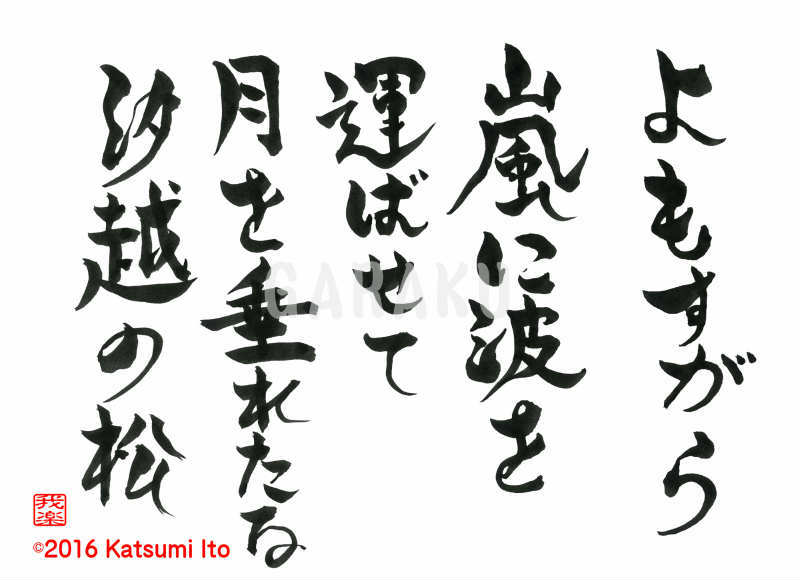 よもすがら
嵐に波を
運ばせて
月を垂れたな
汐越の松
GARAKU
我楽
©2016 Katsumi Ito